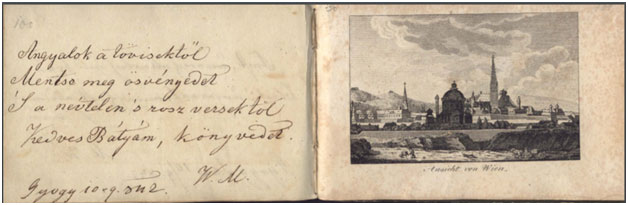 Angyalok a tövisektöl
Mentse meg ösvényedet
'S a névtelen 's rosz versektöl
Kedves Bátyám, könyvedet.
W. M.
Ansicht von Wien.